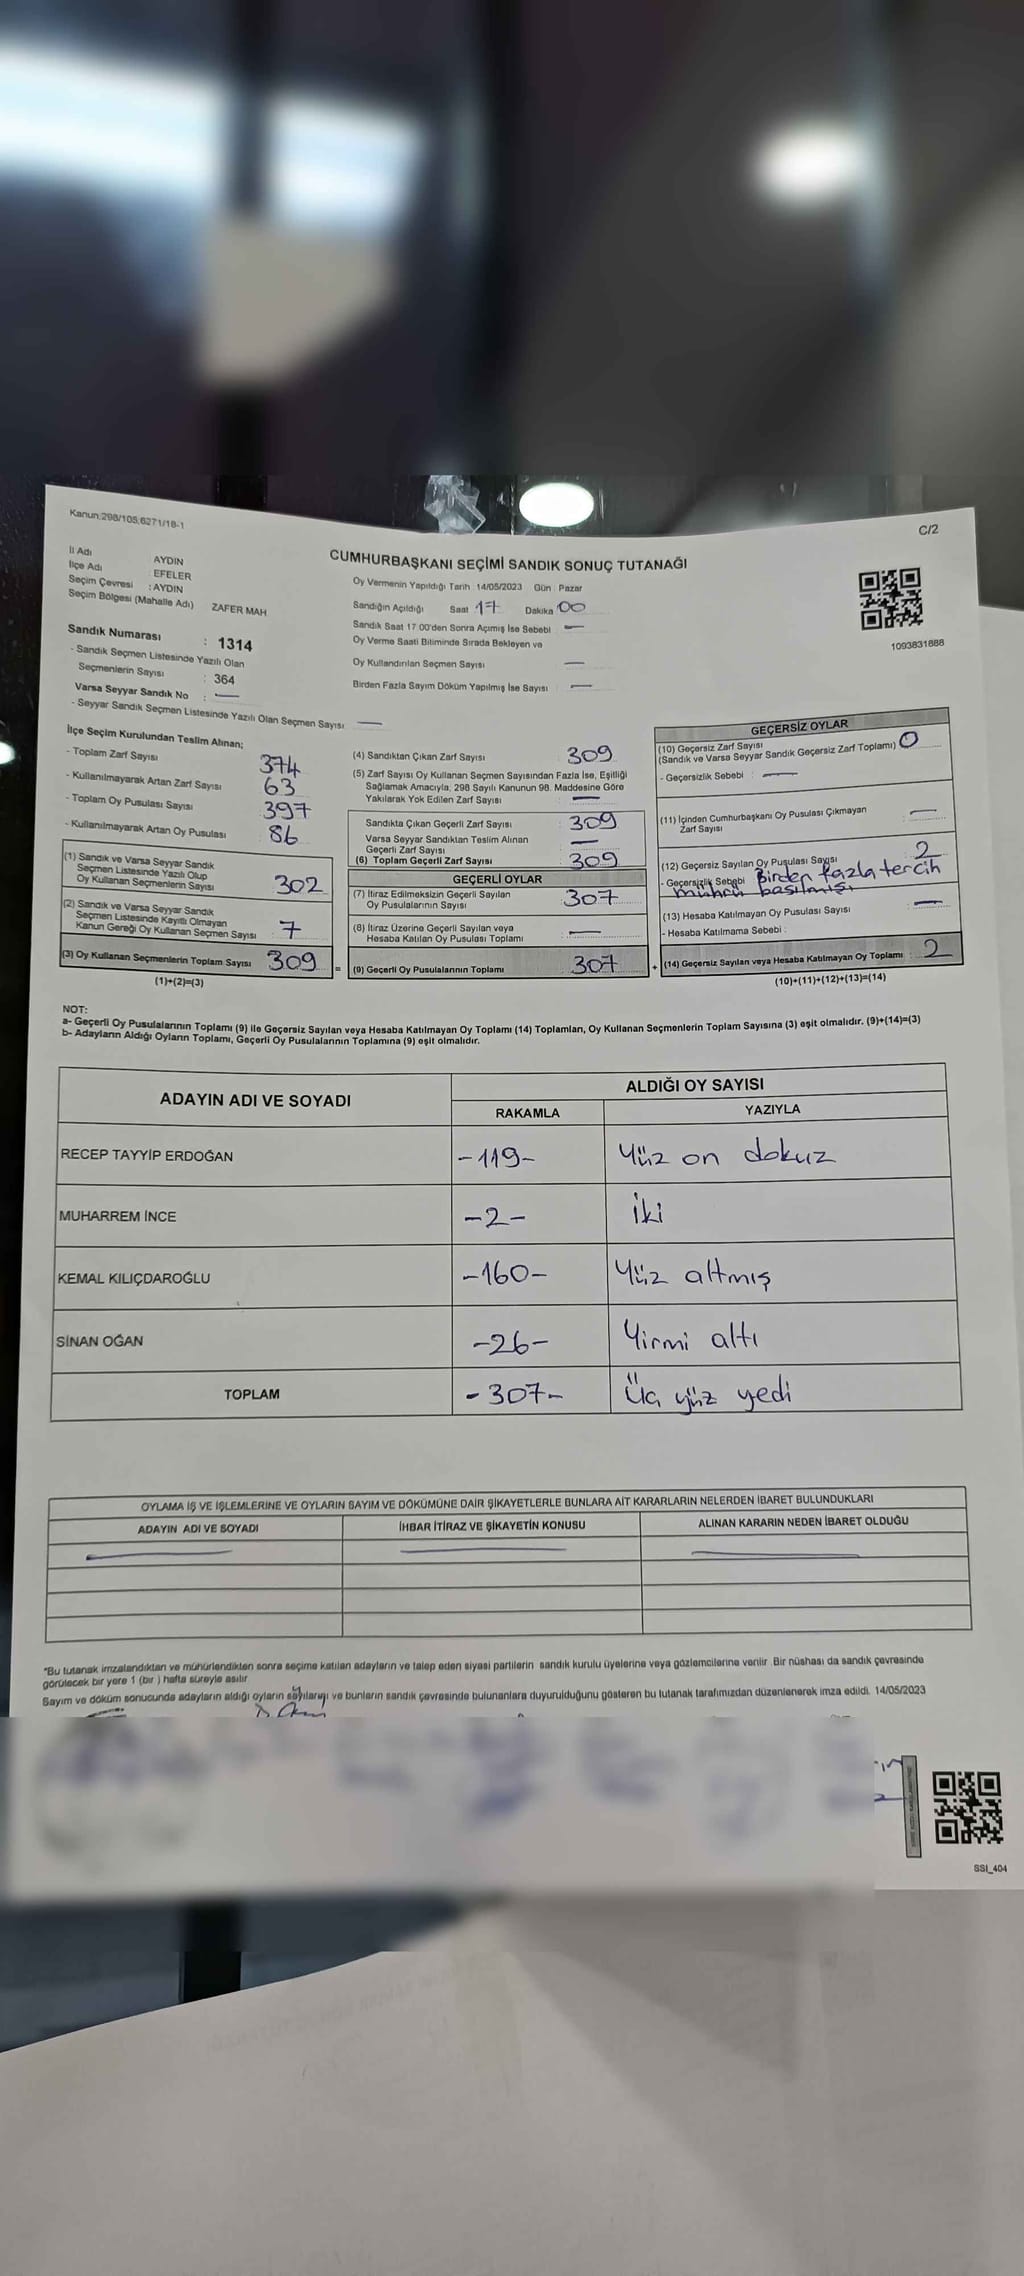 Kanun:298/105;6271/18-1
C/2
CUMHURBAŞKANI SEÇİMİ SANDIK SONUÇ TUTANAĞI
İl Adı AYDIN
İlçe Adı : EFELER
Seçim Çevresi : AYDIN
Seçim Bölgesi (Mahalle Adı) ZAFER MAH
Sandık Numarası : 1314
- Sandık Seçmen Listesinde Yazılı Olan
Seçmenlerin Sayısı : 364
Varsa Seyyar Sandık No : —
- Seyyar Sandık Seçmen Listesinde Yazılı Olan Seçmen Sayısı —
Oy Vermenin Yapıldığı Tarih 14/05/2023 Gün : Pazar
Sandığın Açıldığı Saat 17 Dakika 00
Sandık Saat 17 00'den Sonra Açımış İse Sebebi —
Oy Verme Saati Bitiminde Sırada Bekleyen ve
Oy Kullandırılan Seçmen Sayısı —
Birden Fazla Sayım Döküm Yapılmış İse Sayısı —
1093831688
İlçe Seçim Kurulundan Teslim Alınan;
- Toplam Zarf Sayısı 374
- Kullanılmayarak Artan Zarf Sayısı 63
- Toplam Oy Pusulası Sayısı 397
- Kullanılmayarak Artan Oy Pusulası 86
(1) Sandık ve Varsa Seyyar Sandık
Seçmen Listesinde Yazılı Olup
Oy Kullanan Seçmenlerin Sayısı 302
(2) Sandık ve Varsa Seyyar Sandık
Seçmen Listesinde Kayıtlı Olmayan
Kanun Gereği Oy Kullanan Seçmen Sayısı 7
(3) Oy Kullanan Seçmenlerin Toplam Sayısı 309
(1)+(2)=(3)
(4) Sandıktan Çıkan Zarf Sayısı 309
(5) Zarf Sayısı Oy Kullanan Seçmen Sayısından Fazla İse, Eşitliği
Sağlamak Amacıyla, 298 Sayılı Kanunun 98. Maddesine Göre
Yakılarak Yok Edilen Zarf Sayısı —
Sandıkta Çıkan Geçerli Zarf Sayısı 309
Varsa Seyyar Sandıktan Teslim Alınan
Geçerli Zarf Sayısı —
(6) Toplam Geçerli Zarf Sayısı 309
GEÇERLİ OYLAR
(7) İtiraz Edilmeksizin Geçerli Sayılan
Oy Pusulalarının Sayısı 307
(8) İtiraz Üzerine Geçerli Sayılan veya
Hesaba Katılan Oy Pusulası Toplamı —
= (9) Geçerli Oy Pusulalarının Toplamı 307
GEÇERSİZ OYLAR
(10) Geçersiz Zarf Sayısı
(Sandık ve Varsa Seyyar Sandık Geçersiz Zarf Toplamı) 0
- Geçersizlik Sebebi : —
(11) İçinden Cumhurbaşkanı Oy Pusulası Çıkmayan
Zarf Sayısı : —
(12) Geçersiz Sayılan Oy Pusulası Sayısı 2
- Geçersizlik Sebebi Birden fazla tercih
mührü basılmışı
(13) Hesaba Katılmayan Oy Pusulası Sayısı —
- Hesaba Katılmama Sebebi :
+ (14) Geçersiz Sayılan veya Hesaba Katılmayan Oy Toplamı : 2
(10)+(11)+(12)+(13)=(14)
NOT:
a- Geçerli Oy Pusulalarının Toplamı (9) ile Geçersiz Sayılan veya Hesaba Katılmayan Oy Toplamı (14) Toplamları, Oy Kullanan Seçmenlerin Toplam Sayısına (3) eşit olmalıdır. (9)+(14)=(3)
b- Adayların Aldığı Oyların Toplamı, Geçerli Oy Pusulalarının Toplamına (9) eşit olmalıdır.
ADAYIN ADI VE SOYADI ALDIĞI OY SAYISI
RAKAMLA YAZIYLA
RECEP TAYYİP ERDOĞAN -119- Yüz on dokuz
MUHARREM İNCE -2- İki
KEMAL KILIÇDAROĞLU -160- Yüz altmış
SİNAN OĞAN -26- Yirmi altı
TOPLAM -307- Üç yüz yedi
OYLAMA İŞ VE İŞLEMLERİNE VE OYLARIN SAYIM VE DÖKÜMÜNE DAİR ŞİKAYETLERLE BUNLARA AİT KARARLARIN NELERDEN İBARET BULUNDUKLARI
ADAYIN ADI VE SOYADI İHBAR İTİRAZ VE ŞİKAYETİN KONUSU ALINAN KARARIN NEDEN İBARET OLDUĞU
*Bu tutanak imzalandıktan ve mühürlendikten sonra seçime katılan adayların ve talep eden siyasi partilerin sandık kurulu üyelerine veya gözlemcilerine verilir. Bir nüshası da sandık çevresinde
görülecek bir yere 1 (bir ) hafta süreyle asılır
Sayım ve döküm sonucunda adayların aldığı oyların sayılarını ve bunların sandık çevresinde bulunanlara duyurulduğunu gösteren bu tutanak tarafımızdan düzenlenerek imza edildi. 14/05/2023
SSI_404